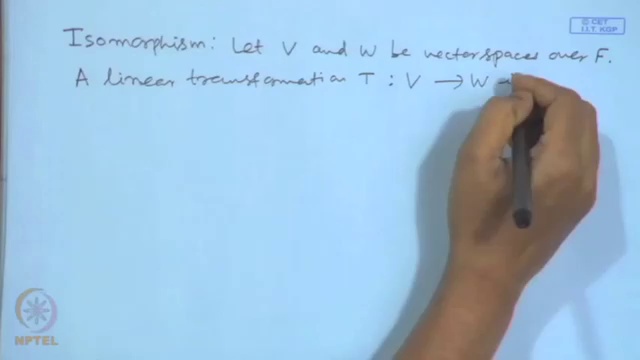 © CET
I.I.T. KGP
Isomorphism: Let V and W be vector spaces over F.
A linear transformation T : V → W
NPTEL